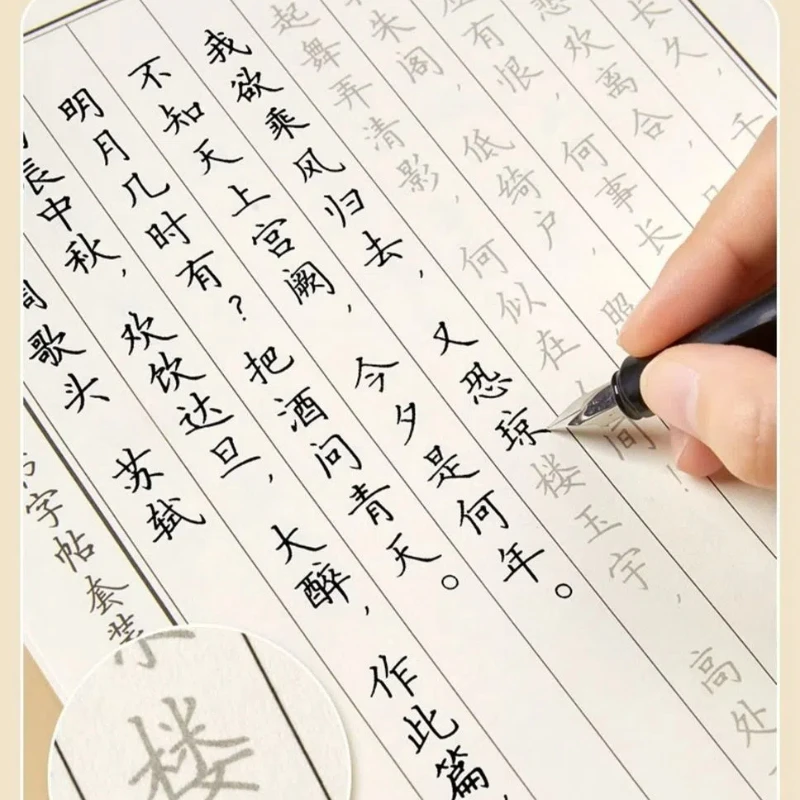 字帖套装
调歌头 苏轼
辰中秋，欢饮达旦，大醉，作此篇，
明月几时有？把酒问青天。
不知天上宫阙，今夕是何年。
我欲乘风归去，又恐琼楼玉宇，高处
起舞弄清影，何似在人间！
朱阁，低绮户，照
应有恨，何事长
悲欢离合，
长久，千
楼